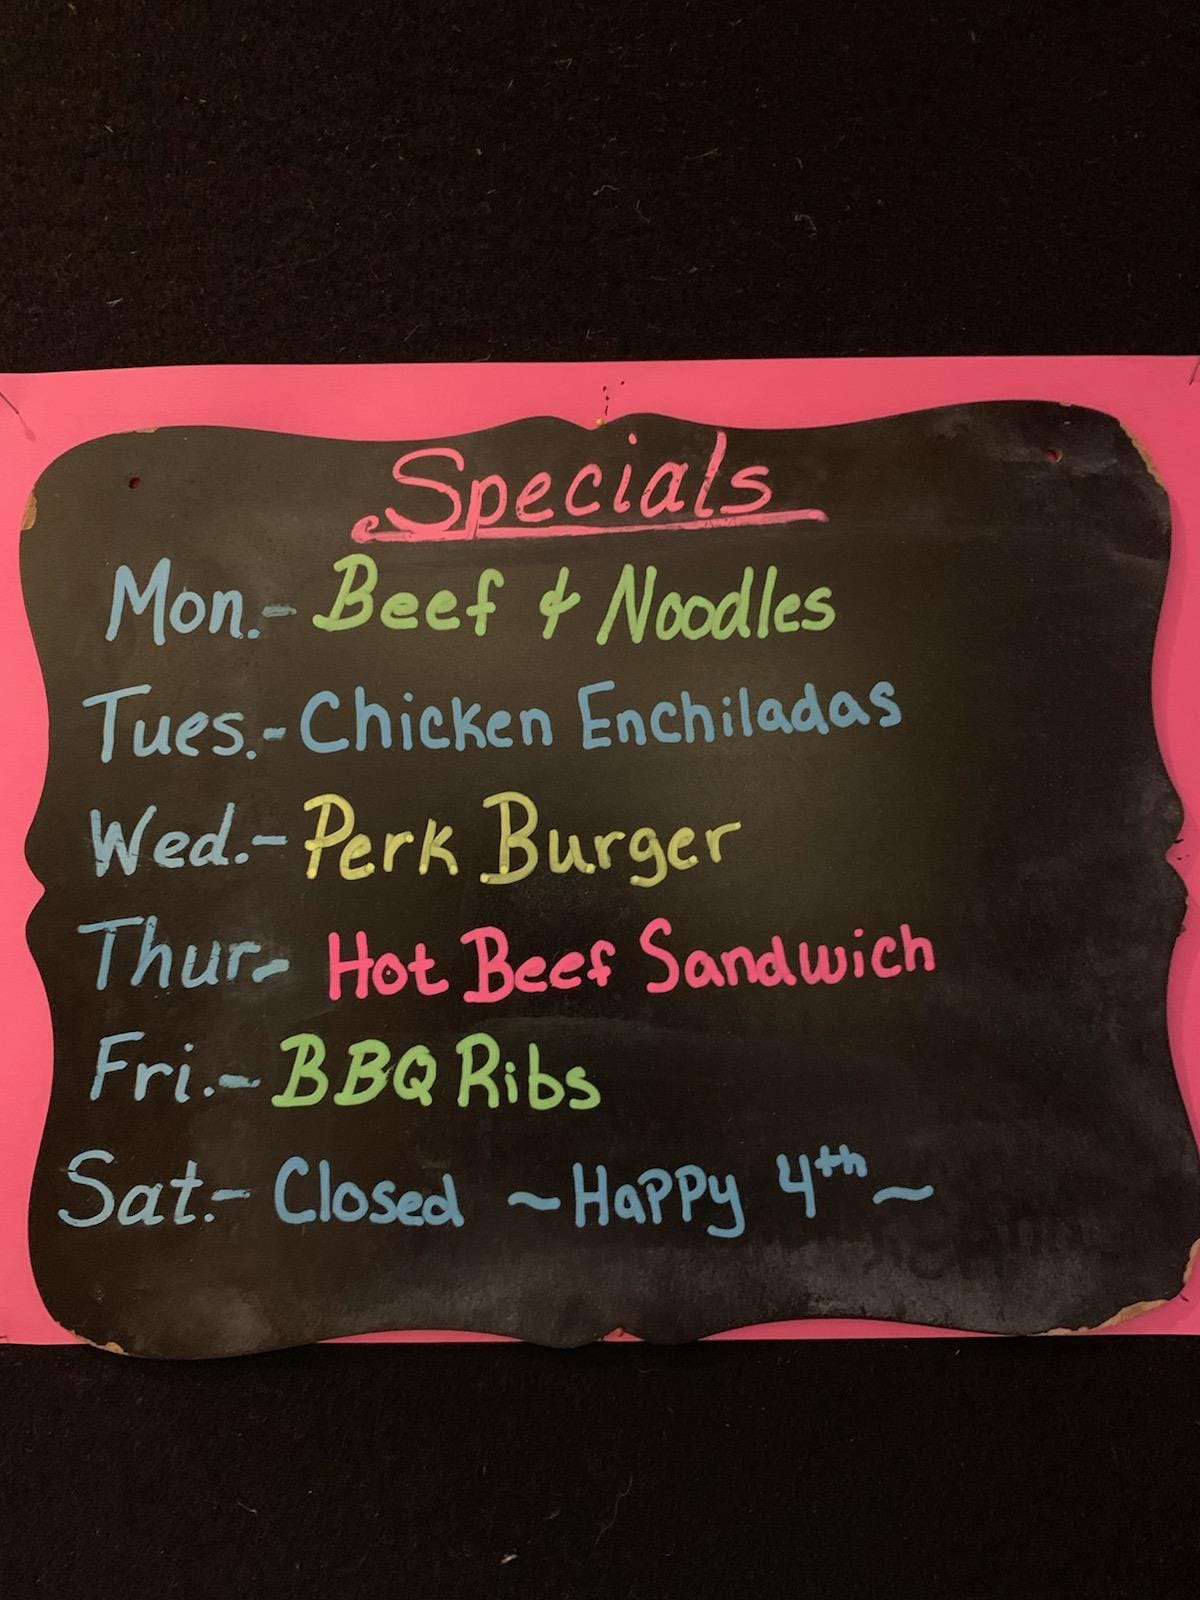 Specials
Mon.- Beef & Noodles
Tues.- Chicken Enchiladas
Wed.- Perk Burger
Thur- Hot Beef Sandwich
Fri.- BBQ Ribs
Sat.- Closed ~Happy 4th~